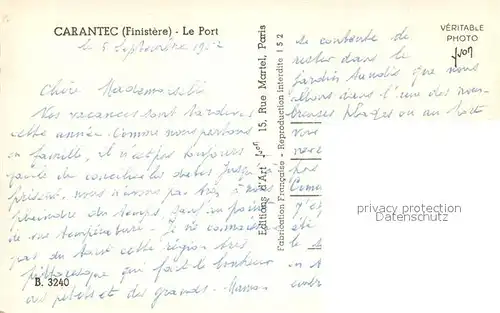 CARANTEC (Finistère) - Le Port
le 5 Septembre 1952
Chère Mademoiselle
Nos vacances sont tardives
cette année. Comme nous partons
en famille, il n'est pas toujours
facile de concilier les dates. Jusqu'à
présent, nous n'avons pas trop à nous
plaindre du temps, sauf au point
de vue température. Je ne connaissais
pas du tout cette région très
pittoresque qui fait le bonheur
des petits et des grands. Maman
B. 3240
Editions d'Art Yvon 15, Rue Martel, Paris
Fabrication Française - Reproduction interdite 152
VÉRITABLE
PHOTO
yvon
se contente de
rester dans le
jardin tandis que nous
allons dans l'une des nom-
breuses plages ou au port
privacy copyright